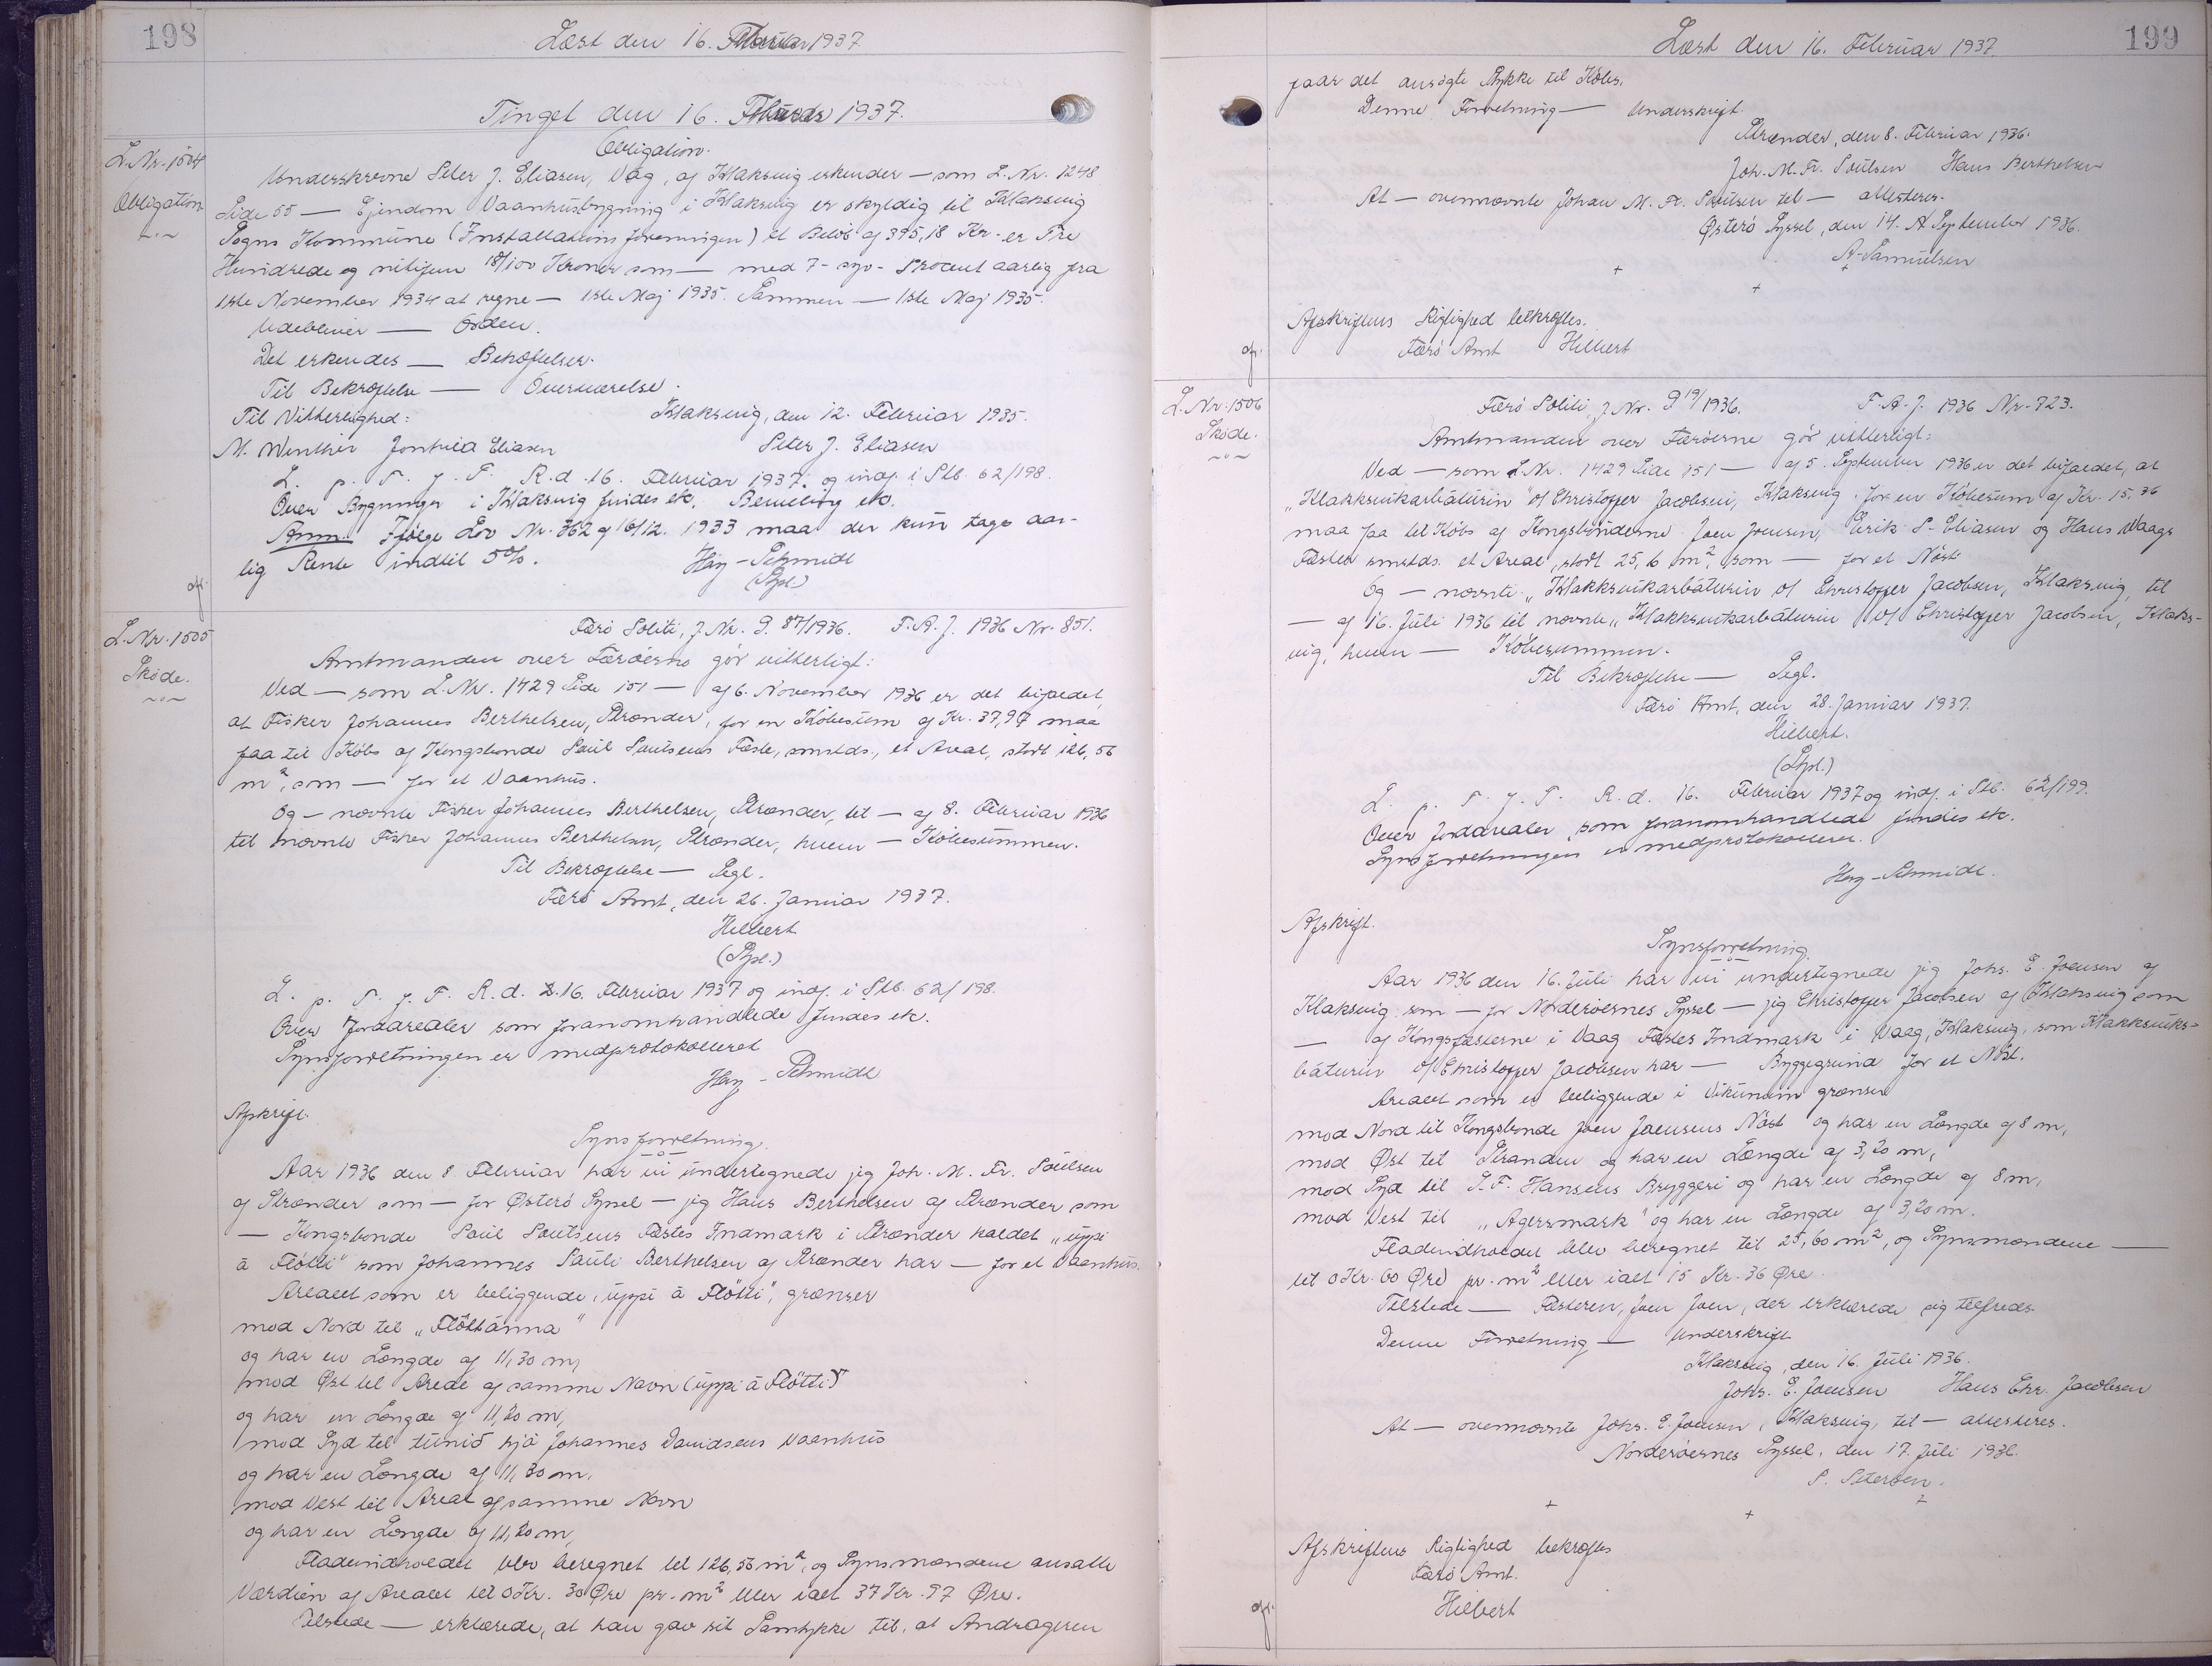 198
Læst den 16. Februar 1937
Tinget den 16. Februar 1937.
L.Nr. 1504
Obligation
Obligation.
Underskrevne Peter J. Eliasen, Våg, af Klaksvig erkender — som L.Nr. 1248
Side 55 — Ejendom Vaanhusbygning i Klaksvig er skyldig til Klaksvig
Sogns Kommune (Installations foreningen) et Beløb af 395,18 Kr. er Tre
Hundrede og nitifem 18/100 Kroner som — med 7 - syv - Procent aarlig fra
1ste November 1934 at regne — 1ste Maj 1935. Sammen — 1ste Maj 1935.
Udebliver — Orden.
Det erkendes — Behæftelser.
Til Bekræftelse — Overværelse.
Til Vitterlighed: Klaksvig, den 12. Februar 1935.
M. Winther Jonhild Eliasen Peter J. Eliasen
L. p. T. f. F. R. d. 16. Februar 1937. og indf. i Skb. 62/198.
Over Bygninger i Klaksvig findes etc. Bemelding etc.
Anm. Ifølge Lov Nr. 362 af 6/12. 1933 maa der kun tages aar-
lig Rente indtil 5%. Høy-Schmidt
(Spl.)
L.Nr. 1505
Skøde.
Færø Politi, J.Nr. G. 87/1936. F.A.J. 1936 Nr. 851.
Amtmanden over Færøerne gør vitterligt:
Ved — som L.Nr. 1429 Side 151 — af 6. November 1936 er det bifaldet,
at Fisker Johannes Berthelsen, Strænder, for en Købesum af Kr. 37,97 maa
faa til Købs af Kongsbonde Poul Poulsens Fæste, smstds., et Areal, stort 126,56
m², som — for et Vaanhus.
Og — nævnte Fisker Johannes Berthelsen, Strænder, til — af 8. Februar 1936
til nævnte Fisker Johannes Berthelsen, Strænder, hvem — Købesummen.
Til Bekræftelse — Segl.
Færø Amt, den 26. Januar 1937.
Hilbert
(Spl.)
L. p. T. f. F. R. d. 16. Februar 1937 og indf. i Skb. 62/198.
Over Jordarealer som foranomhandlede findes etc.
Synsforretningen er medprotokolleret
Høy-Schmidt
Afskrift.
Synsforretning.
Aar 1936 den 8. Februar har vi undertegnede jeg Joh. M. Fr. Poulsen
af Strænder som — for Østerø Syssel — jeg Hans Berthelsen af Strænder som
— Kongsbonde Poul Poulsens Fæstes Indmark i Strænder kaldet „uppi
á Fløtti" som Johannes Pauli Berthelsen af Strænder har — for et Vaanhus.
Arealet som er beliggende „uppi á Fløtti", grænser
mod Nord til „Fløttánna"
og har en Længde af 11,30 m,
mod Øst til Areal af samme Navn (uppi á Fløtti)
og har en Længde af 11,20 m,
mod Syd til túnið hjá Johannes Davidsens Vaanhus
og har en Længde af 11,30 m,
mod Vest til Areal af samme Navn
og har en Længde af 11,20 m,
Fladeindholdet blev beregnet til 126,56 m², og Synsmændene ansatte
Værdien af Arealet til 0 Kr. 30 Øre pr. m² eller ialt 37 Kr. 97 Øre.
Tilstede — erklærede, at han gav sit Samtykke til, at Andrageren
199
Læst den 16. Februar 1937.
faar det ansøgte Stykke til Købs.
Denne Forretning — Underskrift.
Strænder, den 8. Februar 1936.
Joh. M. Fr. Poulsen Hans Berthelsen
At — ovennævnte Johan M. Fr. Poulsen til — attesteres.
Østerø Syssel, den 14. September 1936.
Samuelsen
Afskriftens Rigtighed bekræftes.
Færø Amt Hilbert
L.Nr. 1506
Skøde.
Færø Politi, J.Nr. G 19/1936. F.A.J. 1936 Nr. 723.
Amtmanden over Færøerne gør vitterligt:
Ved — som L.Nr. 1429 Side 151 — af 5. September 1936 er det bifaldet, at
„Klakksvíkarbáturin" v/ Christoffer Jacobsen, Klaksvig for en Købesum af Kr. 15,36
maa faa til Købs af Kongsbønderne Joen Joensen, Eirik P. Eliasen og Hans Waags
Fæster smstds. et Areal, stort 25,6 m², som — for et Nøst
Og — nævnte „Klakksvíkarbáturin v/ Christoffer Jacobsen, Klaksvig, til
— af 16. Juli 1936 til nævnte „Klakksvíkarbáturin v/ Christoffer Jacobsen, Klaks-
vig, hvem — Købesummen.
Til Bekræftelse — Segl.
Færø Amt, den 28. Januar 1937.
Hilbert.
(Spl.)
L. p. T. f. F. R. d. 16. Februar 1937 og indf. i Skb. 62/199.
Over Jordarealer som foranomhandlede findes etc.
Synsforretningen er medprotokolleret.
Høy-Schmidt.
Afskrift.
Synsforretning.
Aar 1936 den 16. Juli har vi undertegnede jeg Johs. E. Joensen af
Klaksvig som — for Norderøernes Syssel — jeg Christoffer Jacobsen af Klaksvig som
— af Kongsfæsterne i Vaag Fæstes Indmark i Vaag, Klaksvig, som Klakksvíks-
báturin v/ Christoffer Jacobsen har — Byggegrund for et Nøst.
Arealet som er beliggende i Víkunum grænser
mod Nord til Kongsbonde Joen Joensens Nøst og har en Længde af 8 m,
mod Øst til Stranden og har en Længde af 3,20 m,
mod Syd til J.F. Hansens Bryggeri og har en Længde af 8 m,
mod Vest til „Agersmark" og har en Længde af 3,20 m.
Fladeindholdet blev beregnet til 25,60 m², og Synsmændene —
til 0 Kr. 60 Øre pr. m² eller ialt 15 Kr. 36 Øre.
Tilstede — Fæsteren, Joen Joen, der erklærede sig tilfreds.
Denne Forretning — Underskrift
Klaksvig, den 16. Juli 1936.
Johs. E. Joensen Hans Chr. Jacobsen
At — ovennævnte Johs. E. Joensen, Klaksvig, til — attesteres.
Norderøernes Syssel, den 17. Juli 1936.
P. Petersen.
Afskriftens Rigtighed bekræftes
Færø Amt.
Hilbert